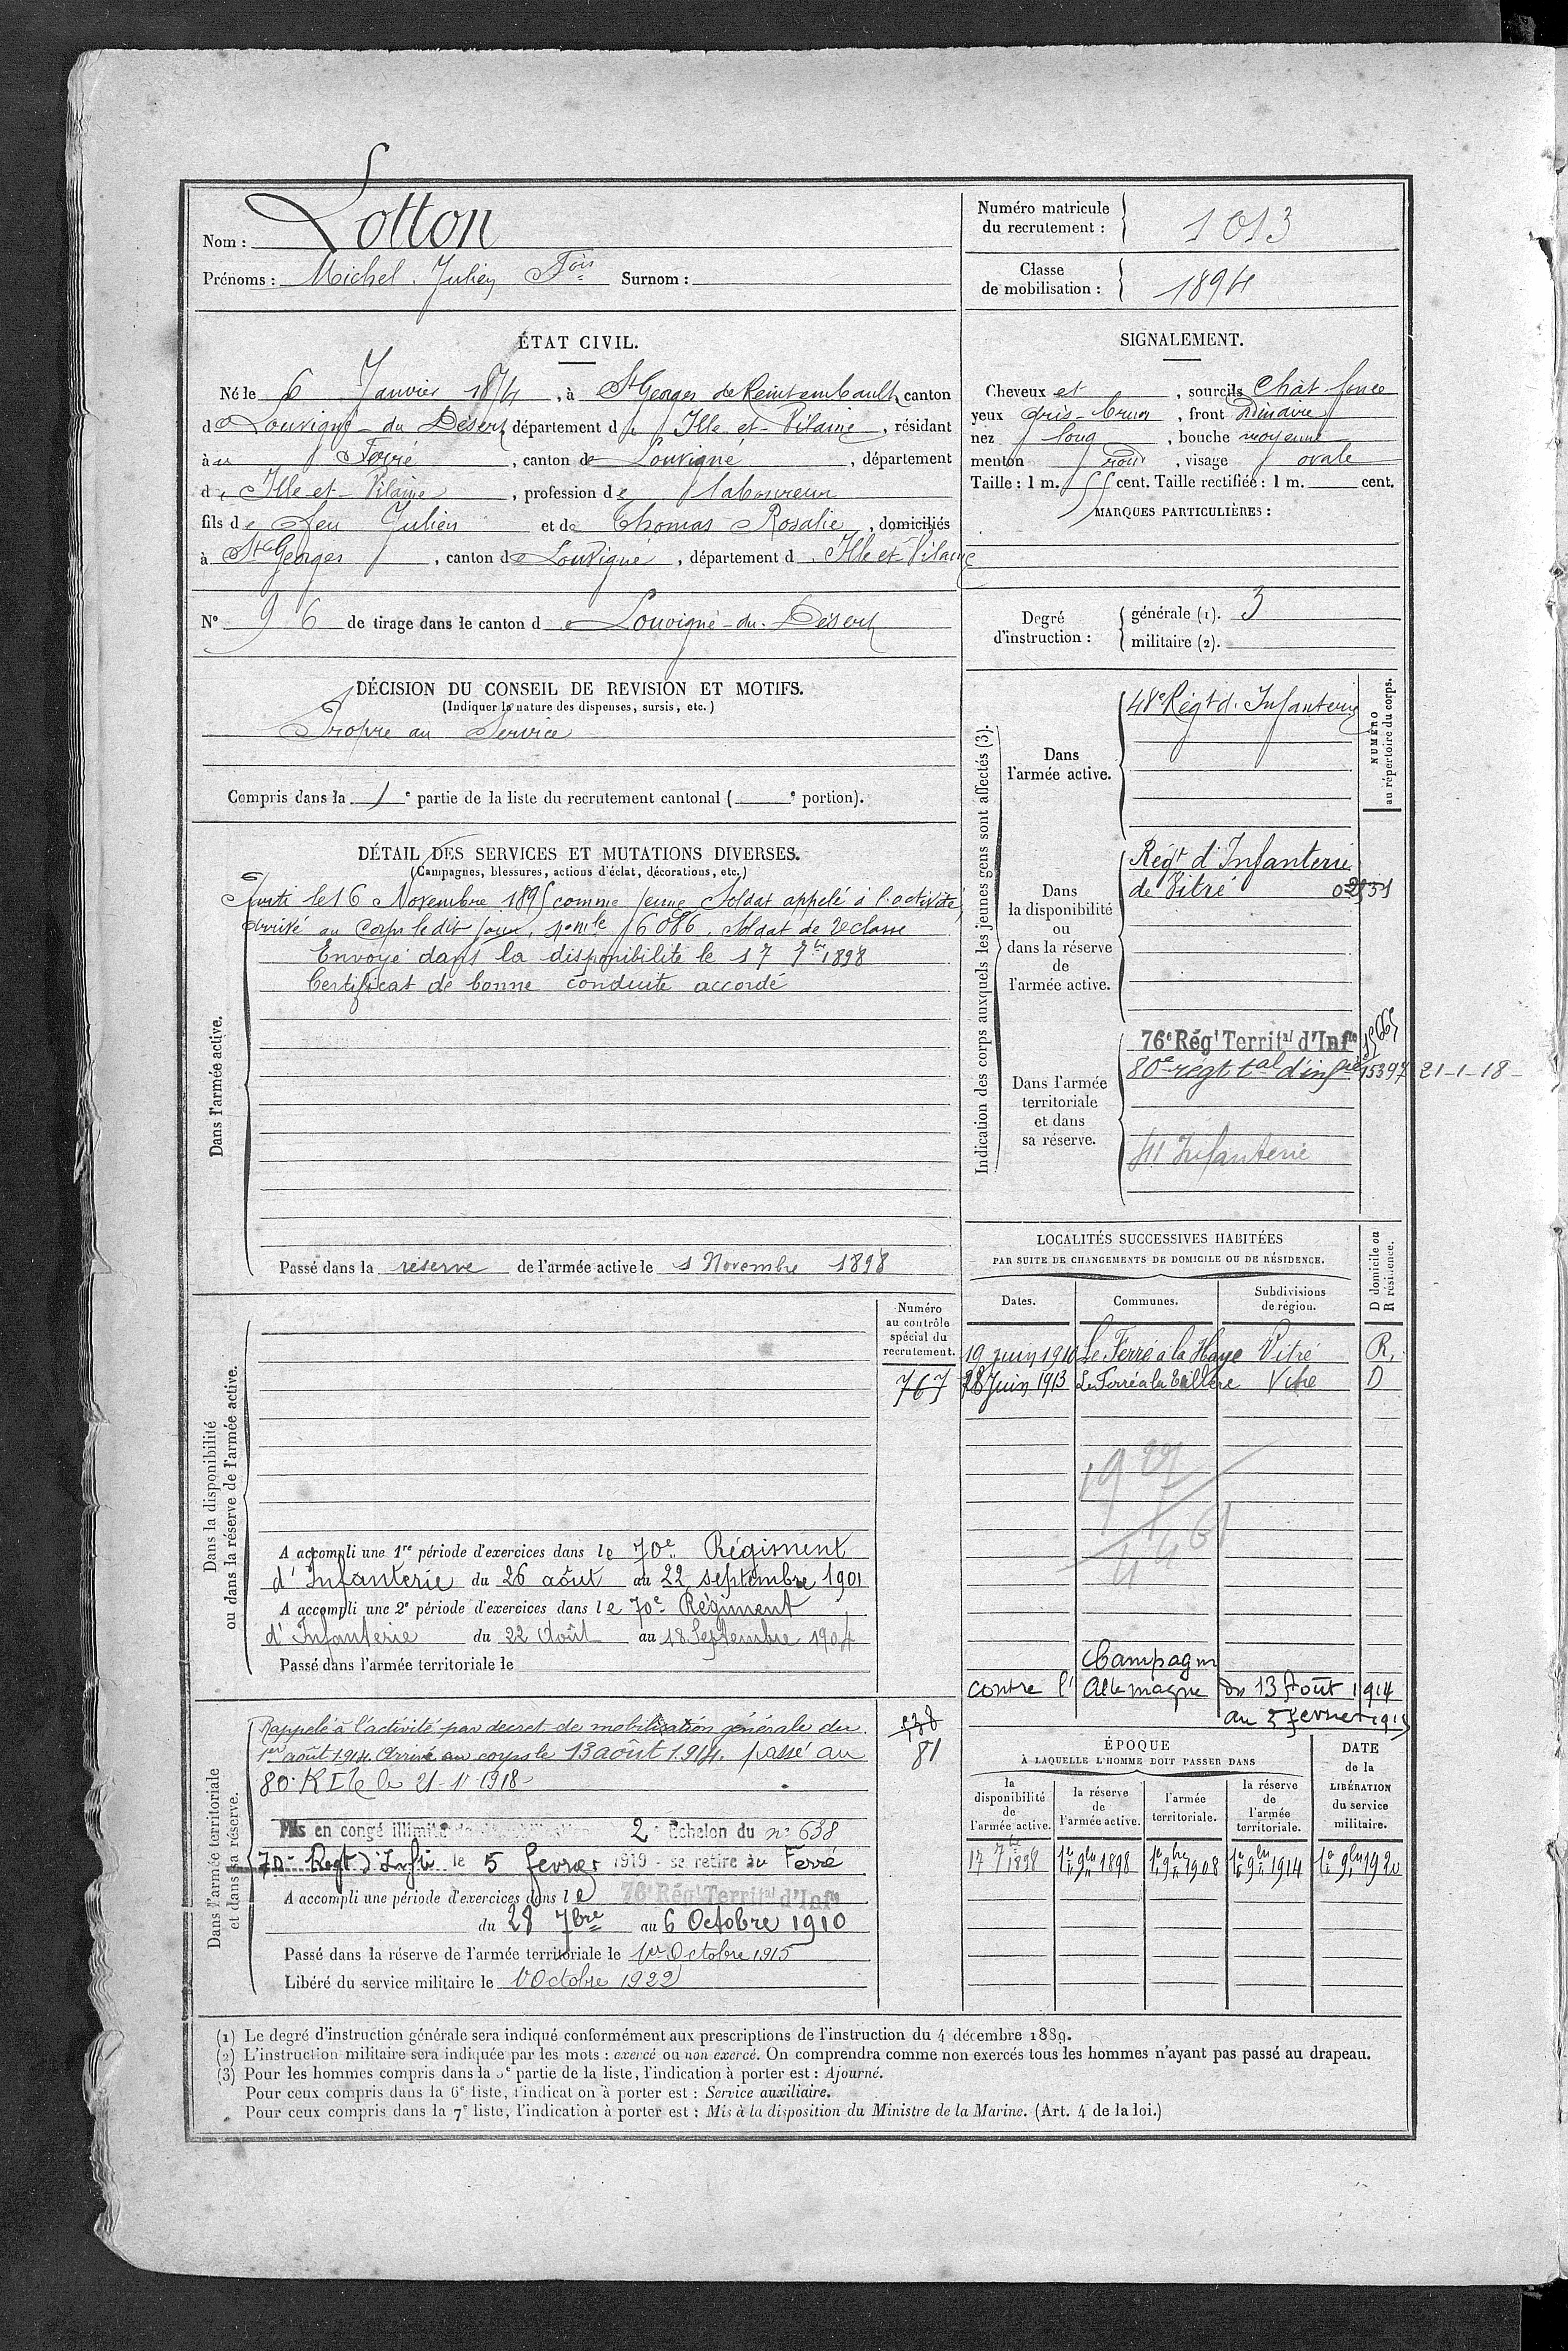 Nom : Lotton
Prénoms : Michel Julien Fois Surnom :
Numéro matricule
du recrutement : 1013
Classe
de mobilisation : 1894
ÉTAT CIVIL.
Né le 6 Janvier 1874, à St Georges de Reintembault, canton
de Louvigné-du Désert, département d' Ille et Vilaine, résidant
à Ferré, canton de Louvigné, département
d' Ille et Vilaine, profession de laboureur
fils de feu Julien et de Thomas Rosalie, domiciliés
à St Georges, canton de Louvigné, département d' Ille et Vilaine
N° 96 de tirage dans le canton de Louvigné-du-Désert
SIGNALEMENT.
Cheveux et , sourcils Chat foncé
yeux gris-brun , front Ordinaire
nez long , bouche moyenne
menton rond , visage ovale
Taille : 1 m. 55 cent. Taille rectifiée : 1 m. cent.
MARQUES PARTICULIÈRES :
Degré
d'instruction :
générale (1). 3
militaire (2).
DÉCISION DU CONSEIL DE REVISION ET MOTIFS.
(Indiquer la nature des dispenses, sursis, etc.)
Propre au Service
Compris dans la 1e partie de la liste du recrutement cantonal ( e portion).
DÉTAIL DES SERVICES ET MUTATIONS DIVERSES.
(Campagnes, blessures, actions d'éclat, décorations, etc.)
Dans l'armée active.
le 16 Novembre 1895 comme jeune Soldat appelé à l'activité,
arrivé au Corps le dit jour, no mle 6086, Soldat de 2e classe
Envoyé dans la disponibilité le 17 7bre 1898
Certificat de bonne conduite accordé
Passé dans la réserve de l'armée active le 1 Novembre 1898
Indication des corps auxquels les jeunes gens sont affectés (3).
NUMÉRO
au répertoire du corps.
Dans
l'armée active.
48e Régt d'Infanterie
Dans
la disponibilité
ou
dans la réserve
de
l'armée active.
Régt d'Infanterie
de Vitré
Dans l'armée
territoriale
et dans
sa réserve.
76e Régt Territal d'Infie
80e régt tal d'infrie 15397 21-1-18
41 Infanterie
LOCALITÉS SUCCESSIVES HABITÉES
PAR SUITE DE CHANGEMENTS DE DOMICILE OU DE RÉSIDENCE.
Dates. Communes. Subdivisions
de région.
D domicile ou
R résidence.
19 juin 1910 Le Ferré à la Haye Vitré R.
28 Juin 1913 Le Ferré à la Vitré D
Campagne
contre l'Allemagne du 13 Août 1914
au 5 fevrier 1919
Dans la disponibilité
ou dans la réserve de l'armée active.
Numéro
au contrôle
spécial du
recrutement.
767
A accompli une 1re période d'exercices dans le 70e Régiment
d'Infanterie du 26 août au 22 septembre 1901
A accompli une 2e période d'exercices dans le 70e Régiment
d'Infanterie du 22 Août au 18 Septembre 1904
Passé dans l'armée territoriale le
Dans l'armée territoriale
et dans sa réserve.
Rappelé à l'activité par decret de mobilisation générale du
1er août 1914. Arrivé au corps le 13 août 1914. passé au
81
80e RIT le 21-1-1918
Mis en congé illimité de démobilisation 2e Echelon du no 638
70e Regt d'Infie le 5 fevrier 1919 se retire au Ferré
A accompli une période d'exercices dans le 76e Régt Territal d'Infie
du 28 7bre au 6 Octobre 1910
Passé dans la réserve de l'armée territoriale le 1er Octobre 1915
Libéré du service militaire le 1 Octobre 1922
ÉPOQUE
À LAQUELLE L'HOMME DOIT PASSER DANS
la
disponibilité
de
l'armée active.
la réserve
de
l'armée active.
l'armée
territoriale.
la réserve
de
l'armée
territoriale.
DATE
de la
LIBÉRATION
du service
militaire.
17 7bre 1898 1er 9bre 1898 1er 9bre 1908 1er 9bre 1914 1er 9bre 1920
(1) Le degré d'instruction générale sera indiqué conformément aux prescriptions de l'instruction du 4 décembre 1889.
(2) L'instruction militaire sera indiquée par les mots : exercé ou non exercé. On comprendra comme non exercés tous les hommes n'ayant pas passé au drapeau.
(3) Pour les hommes compris dans la 5e partie de la liste, l'indication à porter est : Ajourné.
Pour ceux compris dans la 6e liste, l'indication à porter est : Service auxiliaire.
Pour ceux compris dans la 7e liste, l'indication à porter est : Mis à la disposition du Ministre de la Marine. (Art. 4 de la loi.)